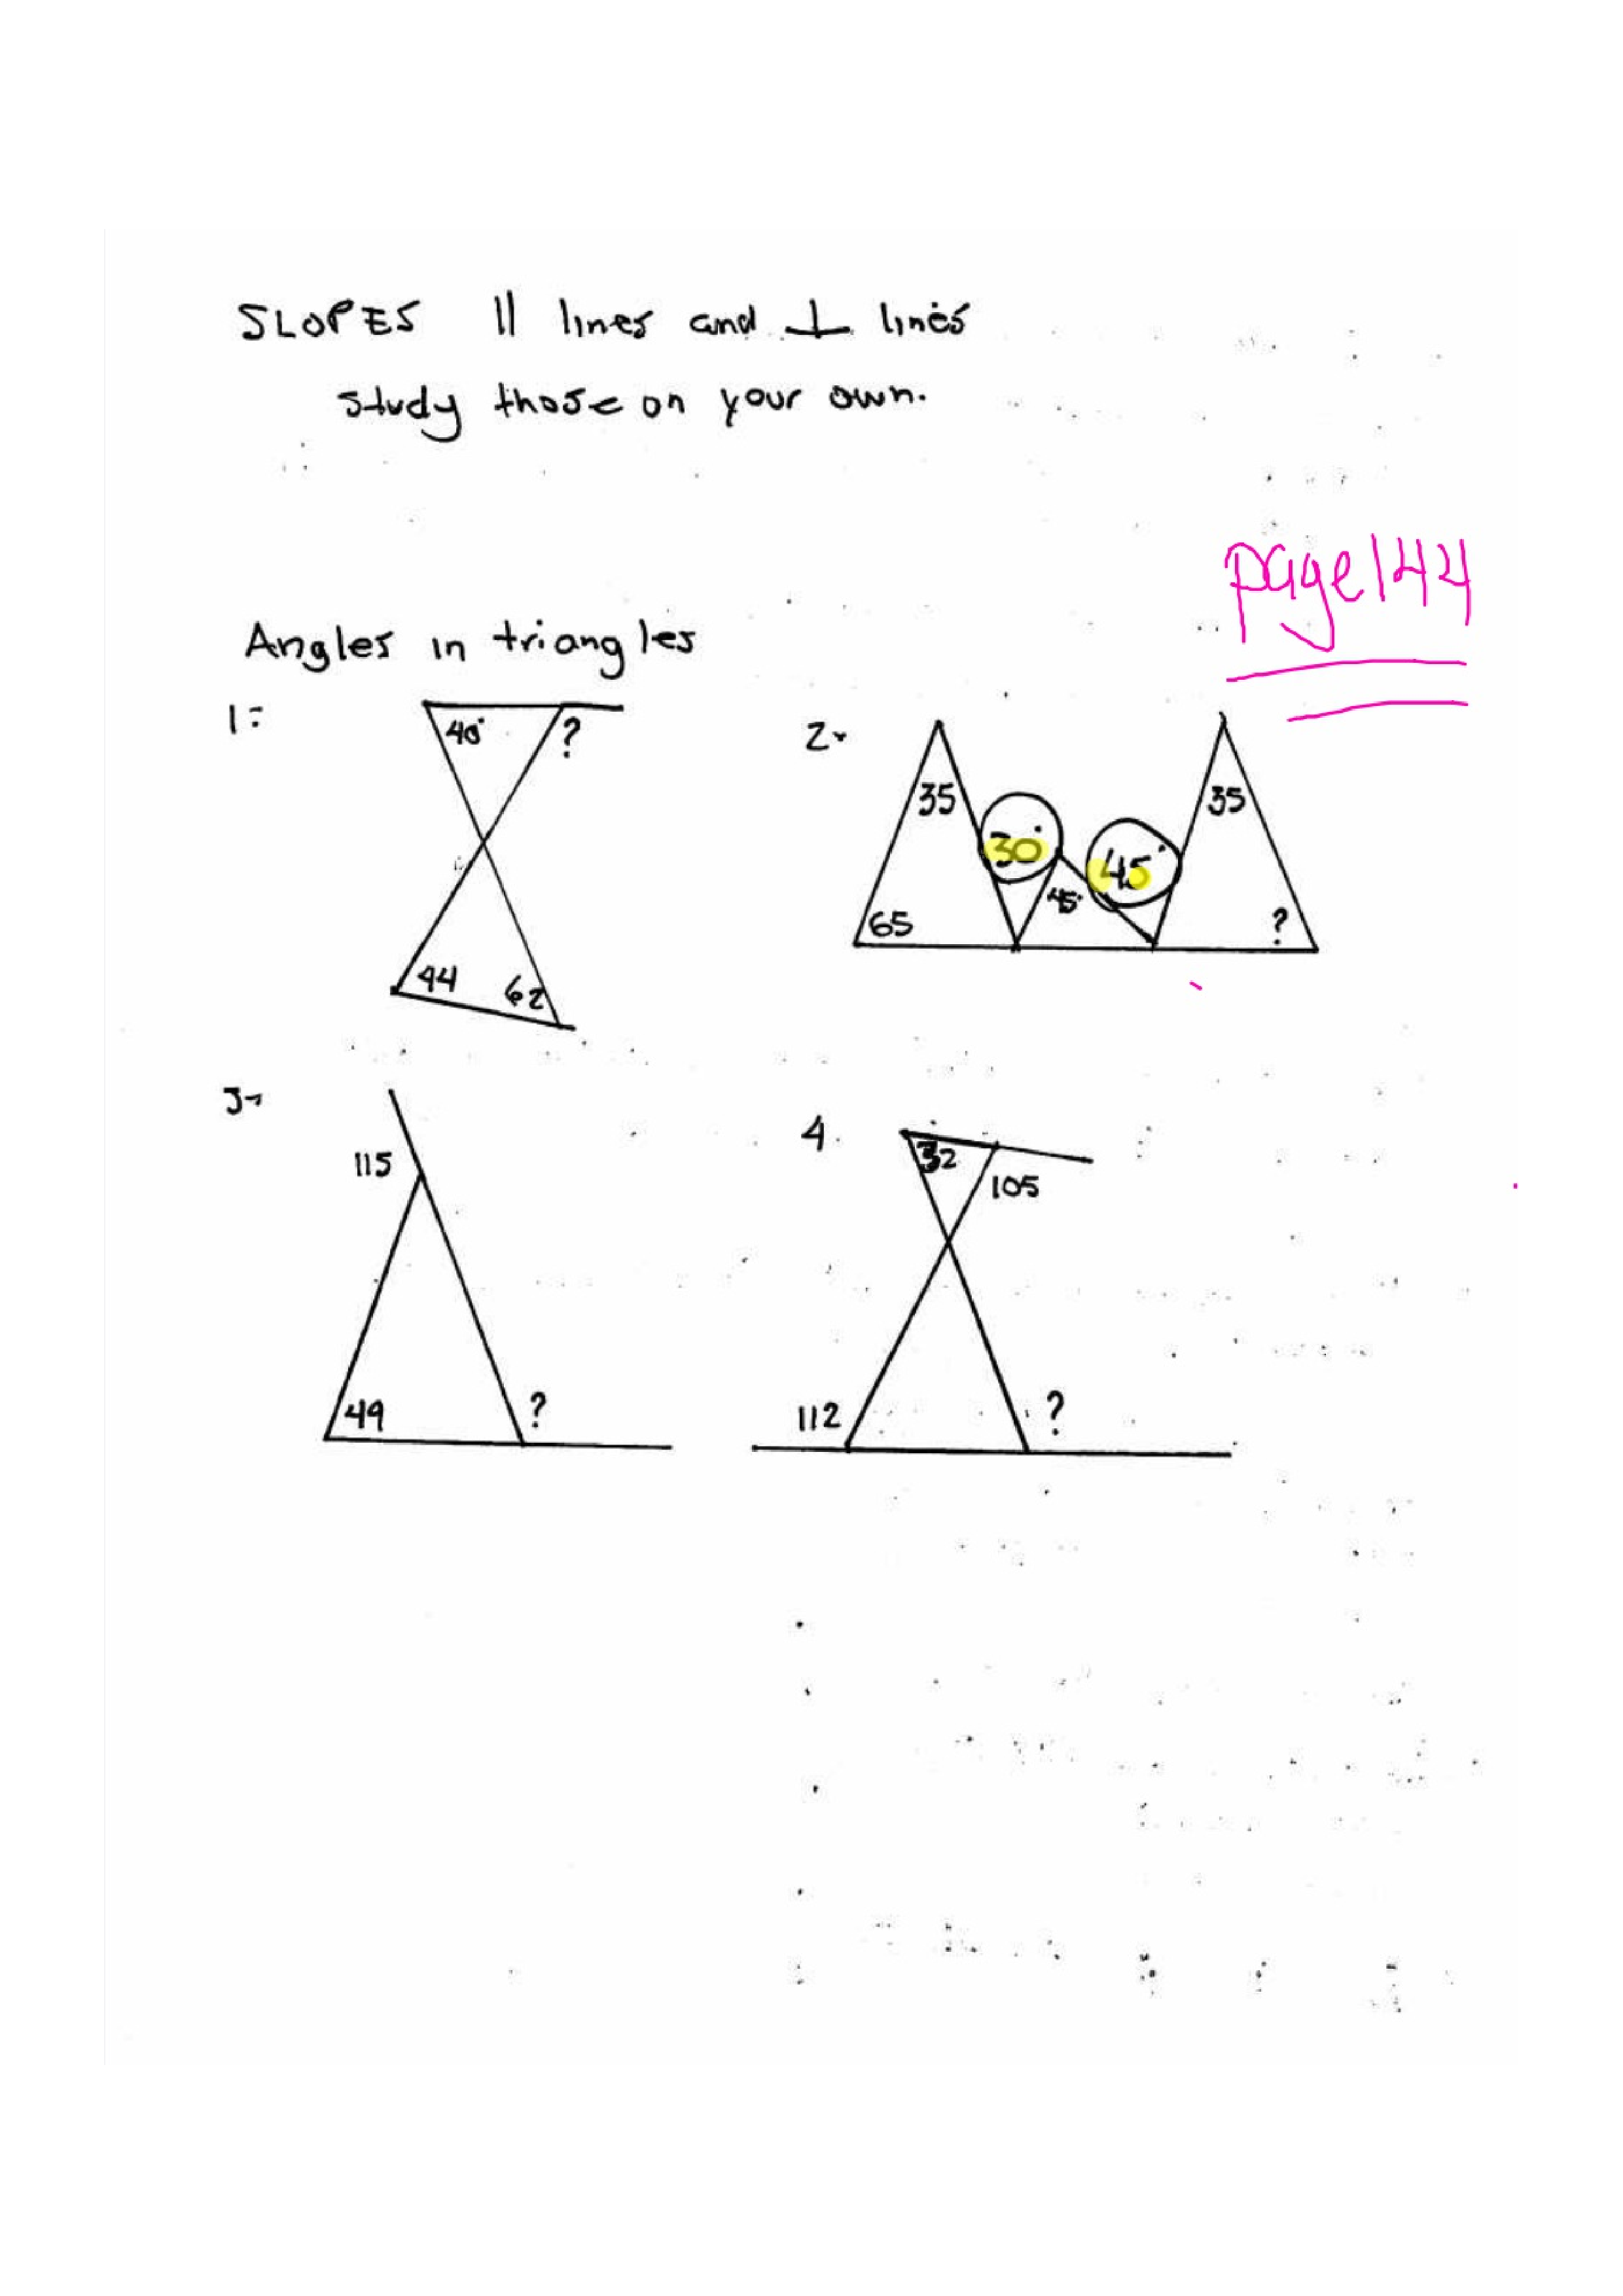 SLOPES || lines and ⊥ lines
study those on your own.
page 144
Angles in triangles
1-
40°
?
44
62
2-
35
30°
45°
45°
35
65
?
3-
115
49
?
4.
32
105
112
?